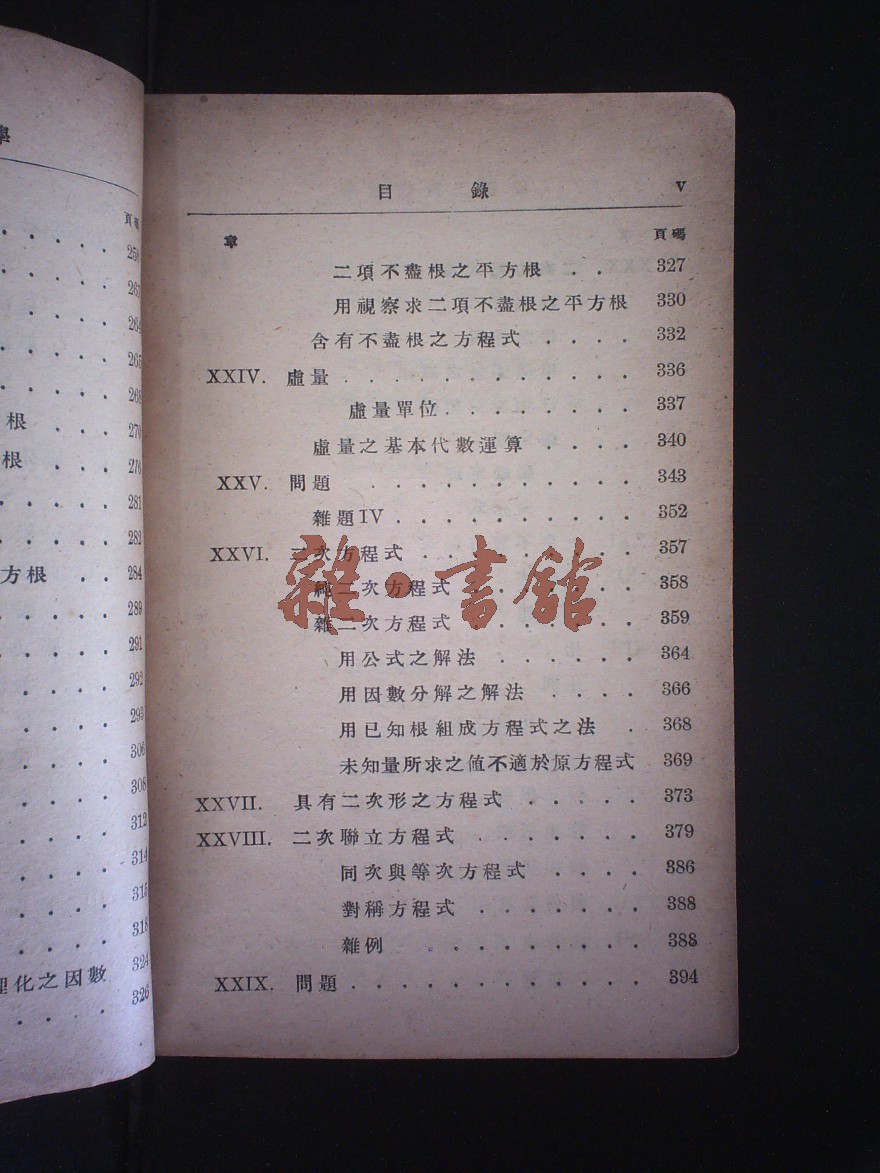 學
頁碼
258
263
264
265
268
根 270
根 278
281
283
方根 284
289
291
292
293
306
308
312
314
315
318
324
理化之因數 326
目錄 V
章 頁碼
二項不盡根之平方根 . . 327
用視察求二項不盡根之平方根 330
含有不盡根之方程式 . . . . 332
XXIV. 虛量 . . . . . . . . . . . . 336
虛量單位 . . . . . . . . 337
虛量之基本代數運算 . . . . 340
XXV. 問題 . . . . . . . . . . . 343
雜題IV . . . . . . . . . . 352
XXVI. 二次方程式 . . . . . . . . . 357
純二次方程式 . . . . . . . 358
雜二次方程式 . . . . . . . 359
用公式之解法 . . . . . . 364
用因數分解之解法 . . . . 366
用已知根組成方程式之法 . 368
未知量所求之値不適於原方程式 369
XXVII. 具有二次形之方程式 . . . . . 373
XXVIII. 二次聯立方程式 . . . . . . . 379
同次與等次方程式 . . . . 386
對稱方程式 . . . . . . . 388
雜例 . . . . . . . . . 388
XXIX. 問題 . . . . . . . . . . . . 394
雜·書館